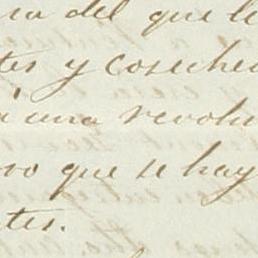 ra del que le
tes y coseche
una revolu
ro que se hay
tes.